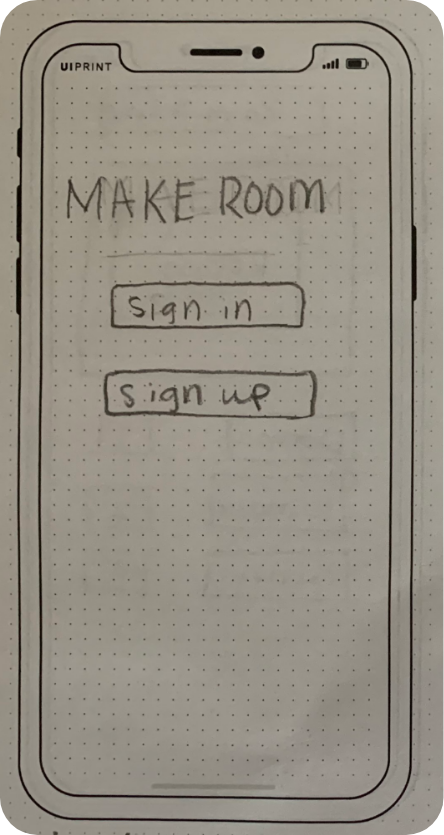 UIPRINT
MAKE ROOM
Sign in
Sign up